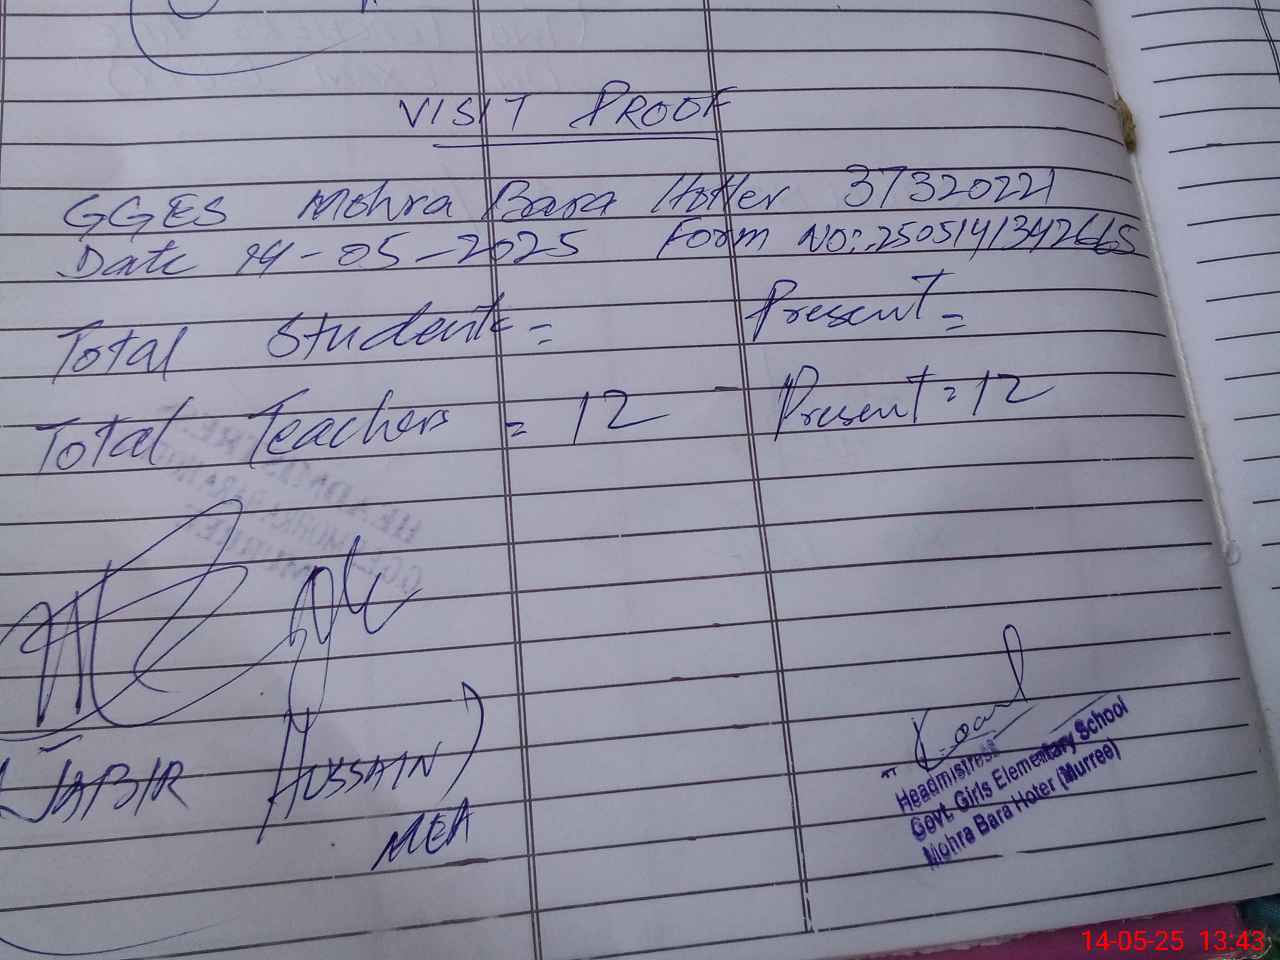 VISIT PROOF
GGES Mohra Bara Hotter 37320221
Date 14-05-2025 Form NO:. 2505141342665
Total Students = Present =
Total Teachers = 12 - Present = 12
(JABIR HUSSAIN)
MEA
Headmistress
Govt. Girls Elementary School
Mohra Bara Hoter (Murree)
14-05-25 13:43